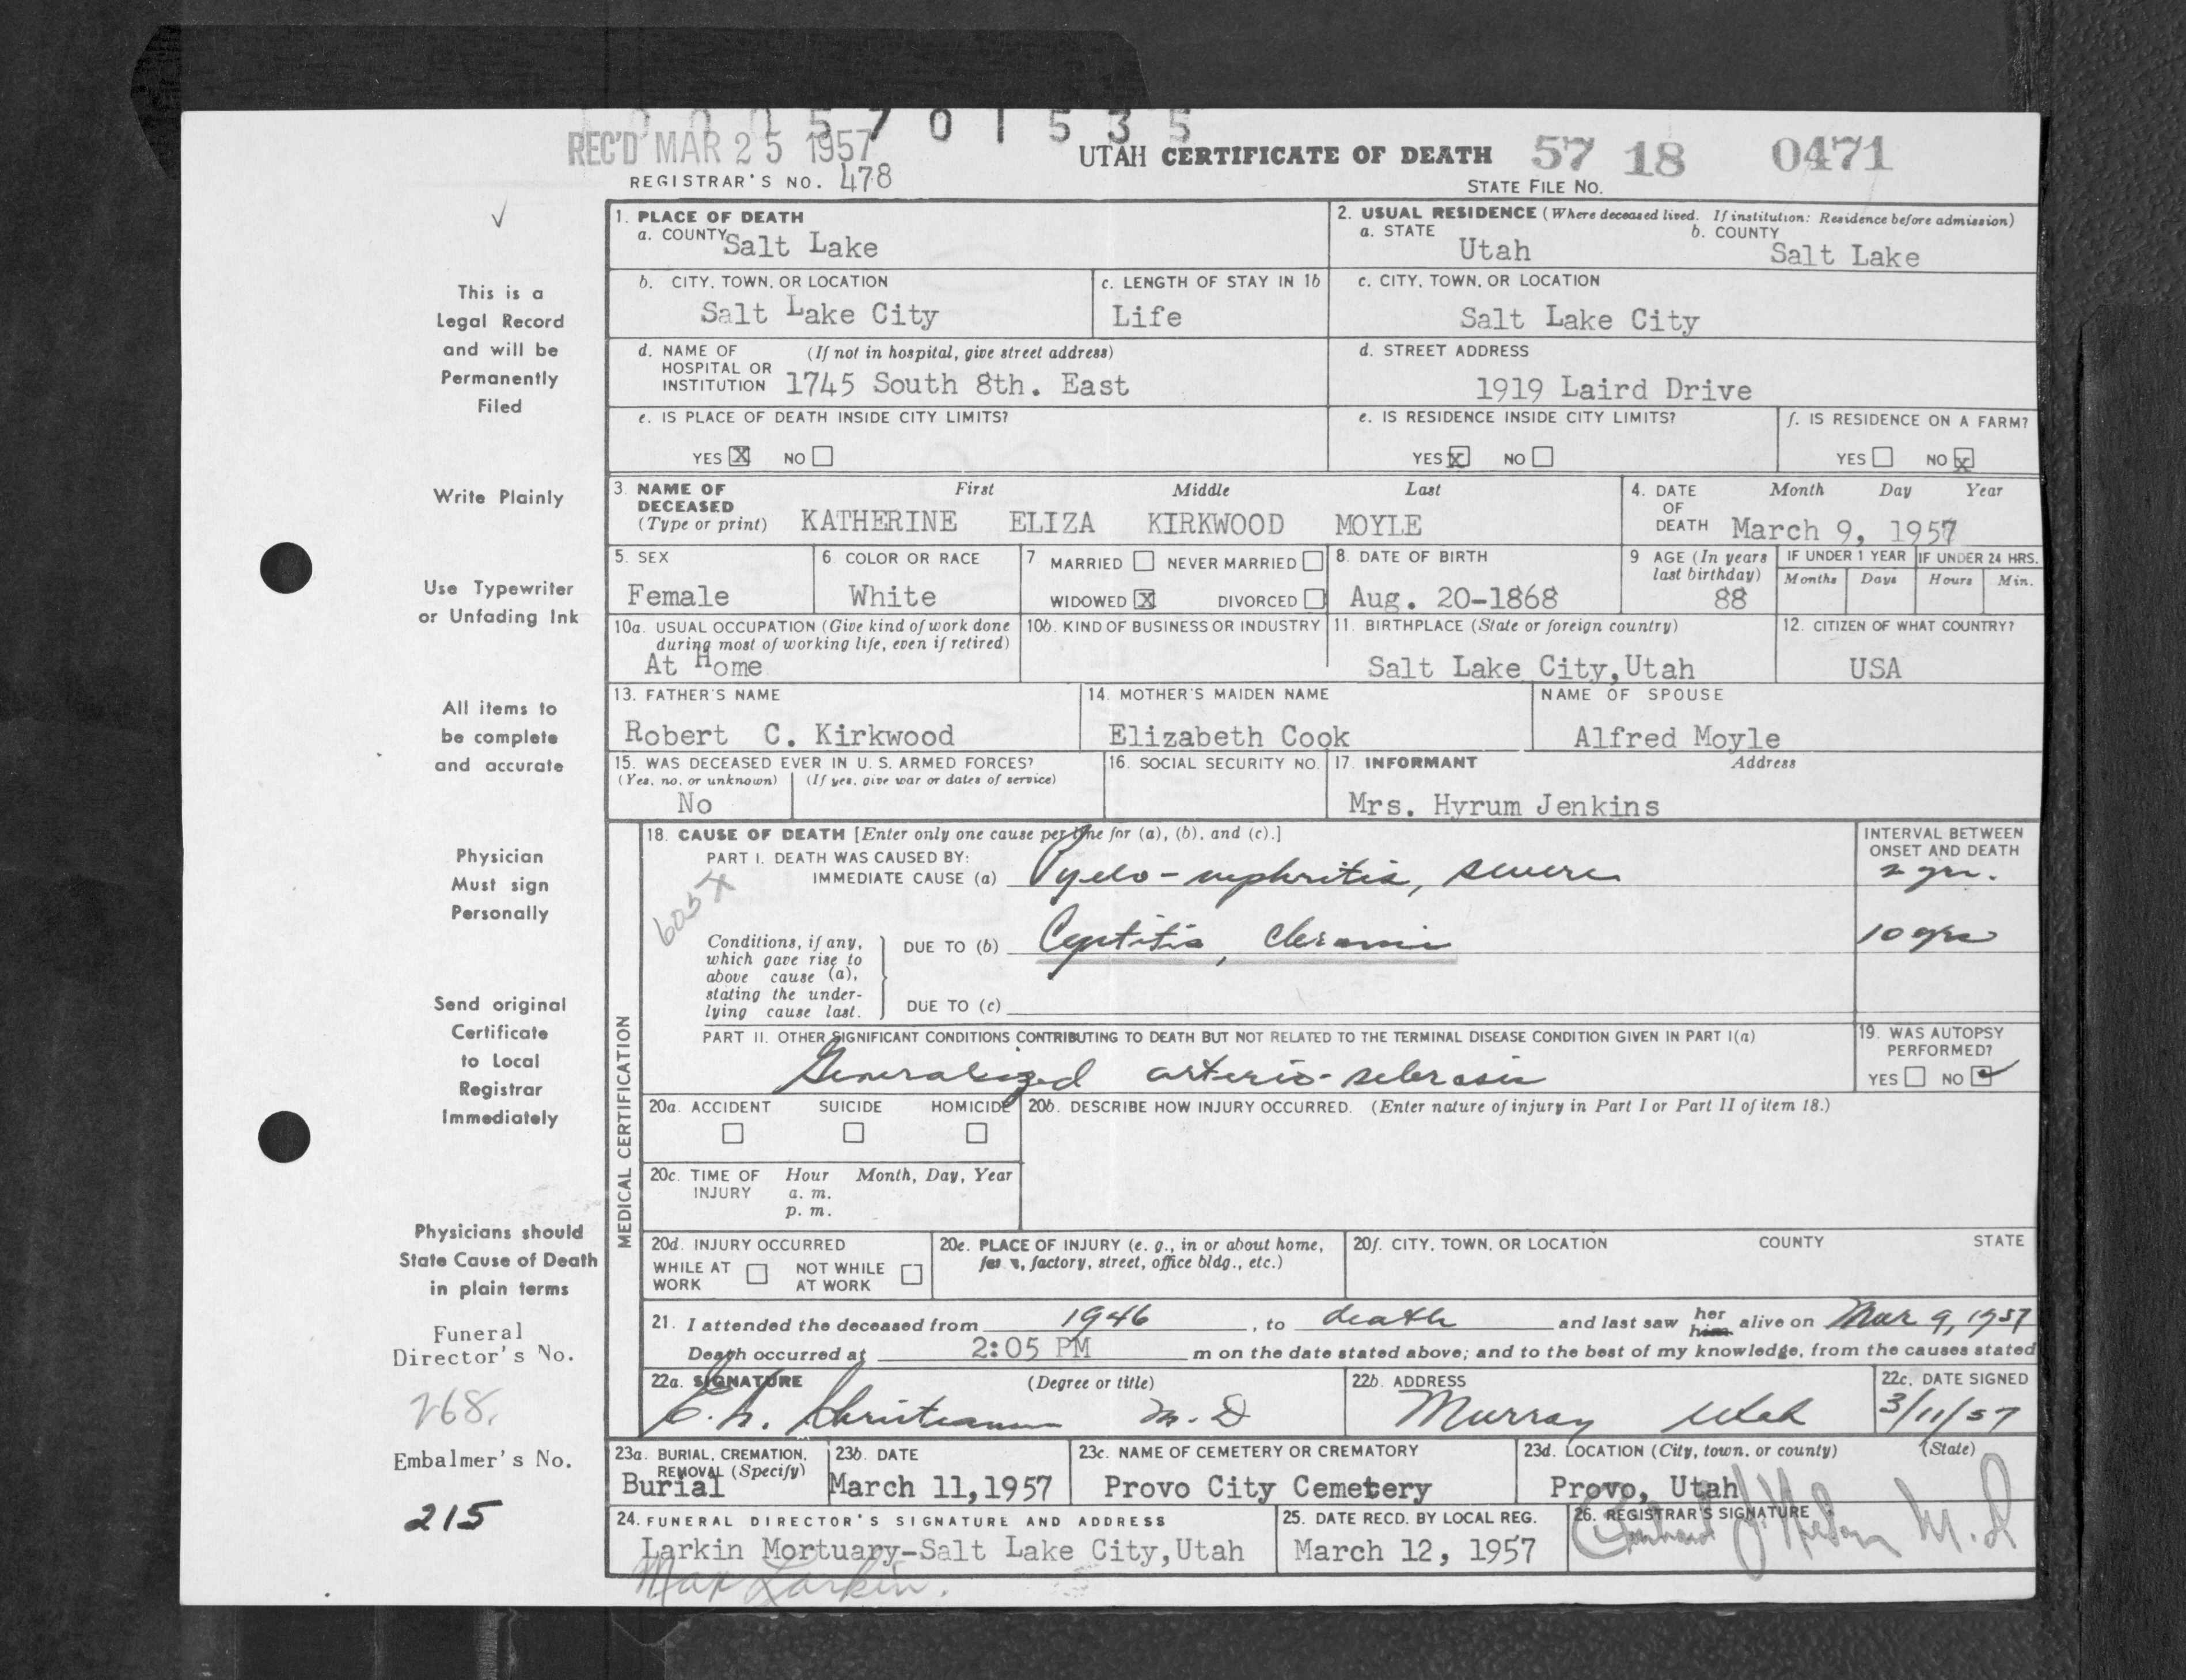 5 7 0 1 5 3 5
REC'D MAR 25 1957
UTAH CERTIFICATE OF DEATH 57 18 0471
REGISTRAR'S NO. 478
STATE FILE NO.
This is a
Legal Record
and will be
Permanently
Filed
Write Plainly
Use Typewriter
or Unfading Ink
All items to
be complete
and accurate
Physician
Must sign
Personally
Send original
Certificate
to Local
Registrar
Immediately
Physicians should
State Cause of Death
in plain terms
Funeral
Director's No.
268.
Embalmer's No.
215
1. PLACE OF DEATH
a. COUNTY Salt Lake
2. USUAL RESIDENCE (Where deceased lived. If institution: Residence before admission)
a. STATE Utah b. COUNTY Salt Lake
b. CITY, TOWN, OR LOCATION
Salt Lake City
c. LENGTH OF STAY IN 1b
Life
c. CITY, TOWN, OR LOCATION
Salt Lake City
d. NAME OF (If not in hospital, give street address)
HOSPITAL OR
INSTITUTION 1745 South 8th. East
d. STREET ADDRESS
1919 Laird Drive
e. IS PLACE OF DEATH INSIDE CITY LIMITS?
YES X NO
e. IS RESIDENCE INSIDE CITY LIMITS?
YES X NO
f. IS RESIDENCE ON A FARM?
YES NO X
3. NAME OF First Middle Last
DECEASED
(Type or print) KATHERINE ELIZA KIRKWOOD MOYLE
4. DATE Month Day Year
OF
DEATH March 9, 1957
5. SEX
Female
6. COLOR OR RACE
White
7 MARRIED NEVER MARRIED
WIDOWED X DIVORCED
8. DATE OF BIRTH
Aug. 20-1868
9 AGE (In years
last birthday)
88
IF UNDER 1 YEAR IF UNDER 24 HRS.
Months Days Hours Min.
10a. USUAL OCCUPATION (Give kind of work done
during most of working life, even if retired)
At Home
10b. KIND OF BUSINESS OR INDUSTRY
11. BIRTHPLACE (State or foreign country)
Salt Lake City,Utah
12. CITIZEN OF WHAT COUNTRY?
USA
13. FATHER'S NAME
Robert C. Kirkwood
14. MOTHER'S MAIDEN NAME
Elizabeth Cook
NAME OF SPOUSE
Alfred Moyle
15. WAS DECEASED EVER IN U. S. ARMED FORCES?
(Yes, no, or unknown) (If yes, give war or dates of service)
No
16. SOCIAL SECURITY NO.
17. INFORMANT Address
Mrs. Hyrum Jenkins
MEDICAL CERTIFICATION
18. CAUSE OF DEATH [Enter only one cause per line for (a), (b), and (c).]
INTERVAL BETWEEN
ONSET AND DEATH
PART I. DEATH WAS CAUSED BY:
IMMEDIATE CAUSE (a) Pyelo-nephritis, severe 2 yrs.
605 X
Conditions, if any,
which gave rise to
above cause (a),
stating the under-
lying cause last.
DUE TO (b) Cystitis, Chronic 10 yrs
DUE TO (c)
PART II. OTHER SIGNIFICANT CONDITIONS CONTRIBUTING TO DEATH BUT NOT RELATED TO THE TERMINAL DISEASE CONDITION GIVEN IN PART I(a)
Generalized arterio-sclerosis
19. WAS AUTOPSY
PERFORMED?
YES NO ✓
20a. ACCIDENT SUICIDE HOMICIDE
20b. DESCRIBE HOW INJURY OCCURRED. (Enter nature of injury in Part I or Part II of item 18.)
20c. TIME OF Hour Month, Day, Year
INJURY a. m.
p. m.
20d. INJURY OCCURRED
WHILE AT NOT WHILE
WORK AT WORK
20e. PLACE OF INJURY (e. g., in or about home,
factory, street, office bldg., etc.)
20f. CITY, TOWN, OR LOCATION COUNTY STATE
21. I attended the deceased from 1946, to death and last saw her him alive on Mar 9, 1957
Death occurred at 2:05 PM m on the date stated above; and to the best of my knowledge, from the causes stated
22a. SIGNATURE (Degree or title)
C. H. Christianson M.D
22b. ADDRESS
Murray Utah
22c. DATE SIGNED
3/11/57
23a. BURIAL, CREMATION,
REMOVAL (Specify)
Burial
23b. DATE
March 11,1957
23c. NAME OF CEMETERY OR CREMATORY
Provo City Cemetery
23d. LOCATION (City, town, or county) (State)
Provo, Utah
24. FUNERAL DIRECTOR'S SIGNATURE AND ADDRESS
Larkin Mortuary-Salt Lake City,Utah
Max Larkin.
25. DATE RECD. BY LOCAL REG.
March 12, 1957
26. REGISTRAR'S SIGNATURE
M.D